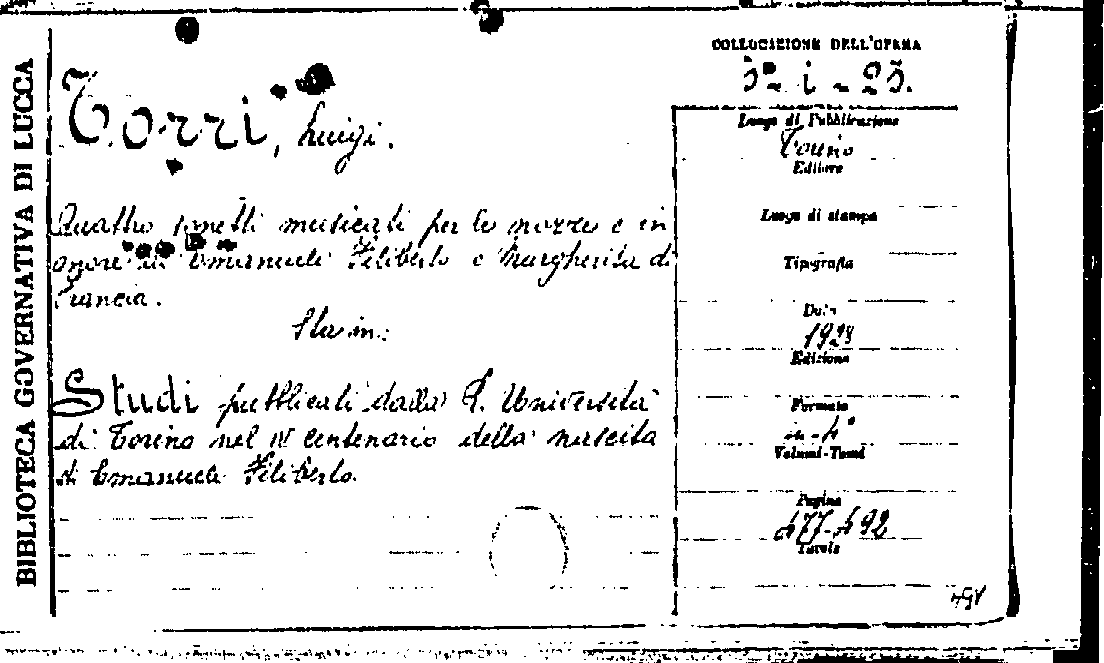 BIBLIOTECA GOVERNATIVA DI LUCCA
Torri, Luigi.
Quattro sonetti musicali per le nozze e in
onore di Emanuele Filiberto e Margherita di
Francia.
Sta in:
Studi pubblicati dalla R. Università
di Torino nel IV centenario della nascita
di Emanuele Filiberto.
COLLOCAZIONE DELL'OPERA
i - 25.
Luogo di Pubblicazione
Torino
Editore
Luogo di stampa
Tipografia
Data
1928
Edizione
Formato
in-4°
Volumi-Tomi
Pagine
477-492
Tavole